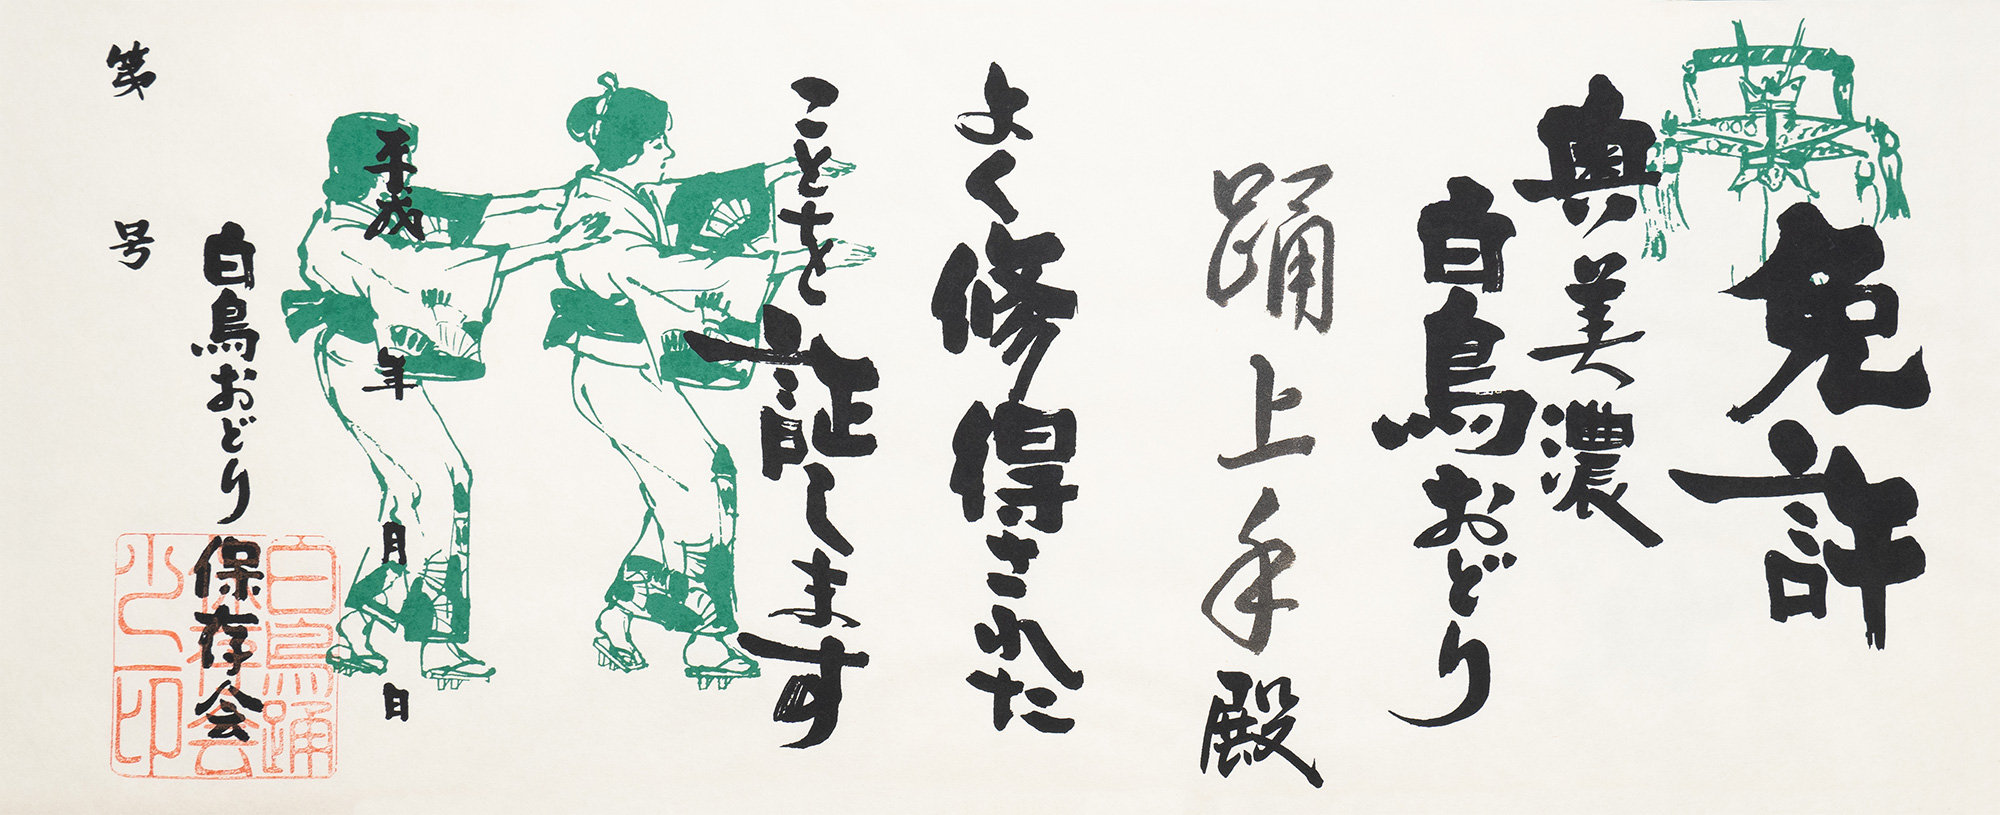 免許
奥美濃
白鳥おどり
踊上手殿
よく修得された
ことを証します
平成 年 月 日
白鳥おどり保存会
第 号
白鳥踊
保存会
之印